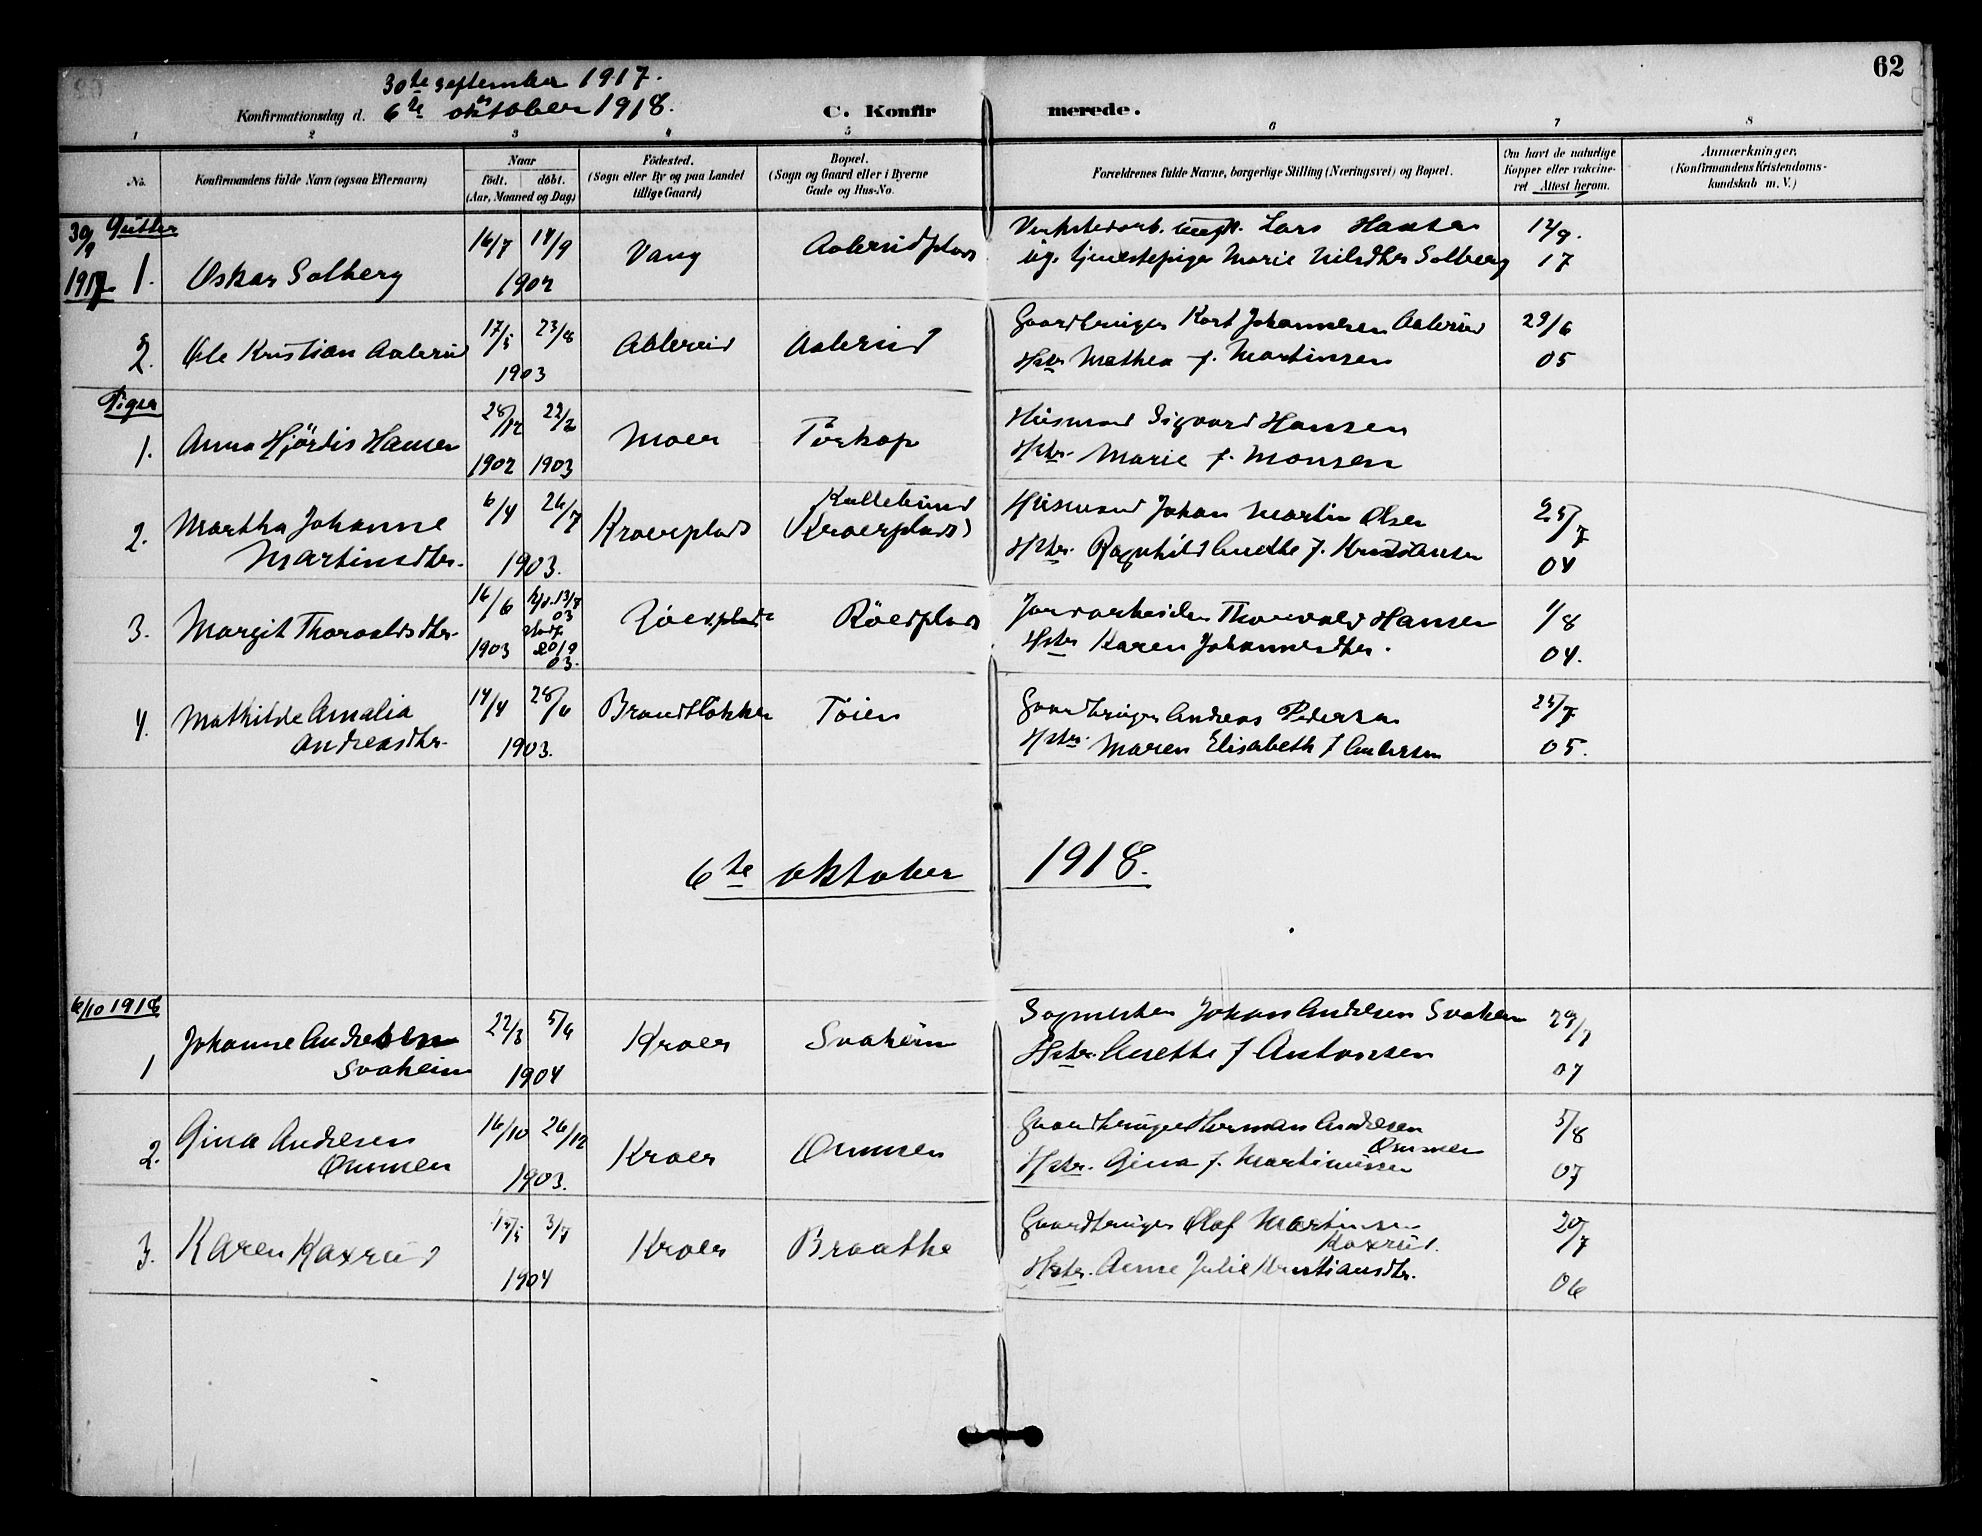 62
30te september 1917.
Konfirmationsdag d. 6te oktober 1918. C. Konfirmerede.
1 2 3 4 5 6 7 8
No. Konfirmandens fulde Navn (ogsaa Efternavn) Naar født. døbt. (Aar, Maaned og Dag) Fødested. (Sogn eller By og paa Landet tillige Gaard) Bopæl. (Sogn og Gaard eller i Byerne Gade og Hus-No. Forældrenes fulde Navne, borgerlige Stilling (Næringsvei) og Bopæl. Om havt de naturlige Kopper eller vakcineret Attest herom. Anmærkninger. (Konfirmandens Kristendomskundskab m. V.)
30/9 1917 Gutter
1. Oskar Solberg 16/7 14/9 1902 Vang Aalerudplads Lars Hansen 12/9.
ug. tjenestepige Marie Nilsdtr Solberg 17
2. Ole Kristian Aalerud 17/5 23/8 1903 Aalerud Aalerud Gaardbruger Karl Johannesen Aalerud 29/6
Hstr Mathea f. Martinsen 05
Piger
1. Anna Hjördis Hansen 28/12 1902 22/2 1903 Moer Törkop Husmand Sigvard Hansen
Hstr. Marie f. Monsen
2. Martha Johanne 6/4 26/7 Kroerplads Kullebund Husmand Johan Martin Olsen 25/7
Martinsdtr. 1903. (Kroerplads) Hstr. Ragnhild Anette f. Kristiansen 04
3. Margit Thorvaldsdtr. 16/6 1903 hjd. 13/8 03 stadf. 20/9 03. Röedplads Röedplads Jordarbeider Thorvald Hansen 1/8
Hstr Karen Johannesdtr. 04.
4. Mathilde Amalia 14/4 28/6 Brandtløkken Töien Gaardbruger Andreas Pedersen 25/7
Andreasdtr. 1903. Hstr. Maren Elisabeth f Andersen 05.
6te oktober 1918.
6/10 1918
1 Johanne Andresen 22/3 5/6 Kroer Svaheim Sagmester Johan Andresen Svaheim 29/7
Svaheim 1904 Hstr. Anette f Antonsen 07
2. Gina Andresen 16/10 26/12 Kroer Ommen Gaardbruger Herman Andresen Ommen 5/8
Ommen 1903. Hstr. Gina f. Martinussen 07
3. Karen Kaxrud 15/5 3/7 1904 Kroer Braathe Gaardbruger Olaf Martinsen Kaxrud. 20/7
Hstr. Anne Julie Kristiansdtr. 06